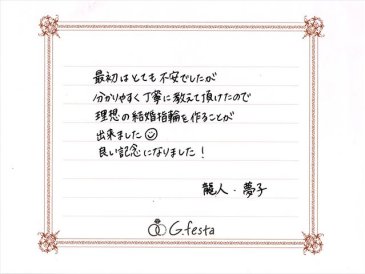 最初はとても不安でしたが
分かりやすく丁寧に教えて頂けたので
理想の結婚指輪を作ることが
出来ました
良い記念になりました！
龍人・夢子
G.festa